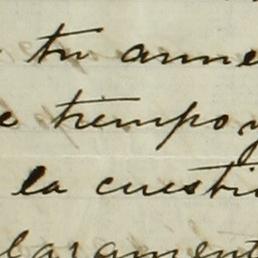 tu anme
e tiempo y
la cuesti
larament